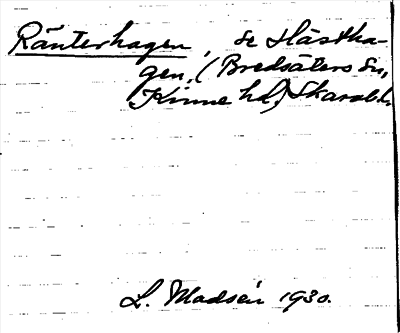 Ränterhagen, se Hästha-
gen, (Bredsäters sn,
Kinne hd, Skarab.l.
L. Madsén 1930.